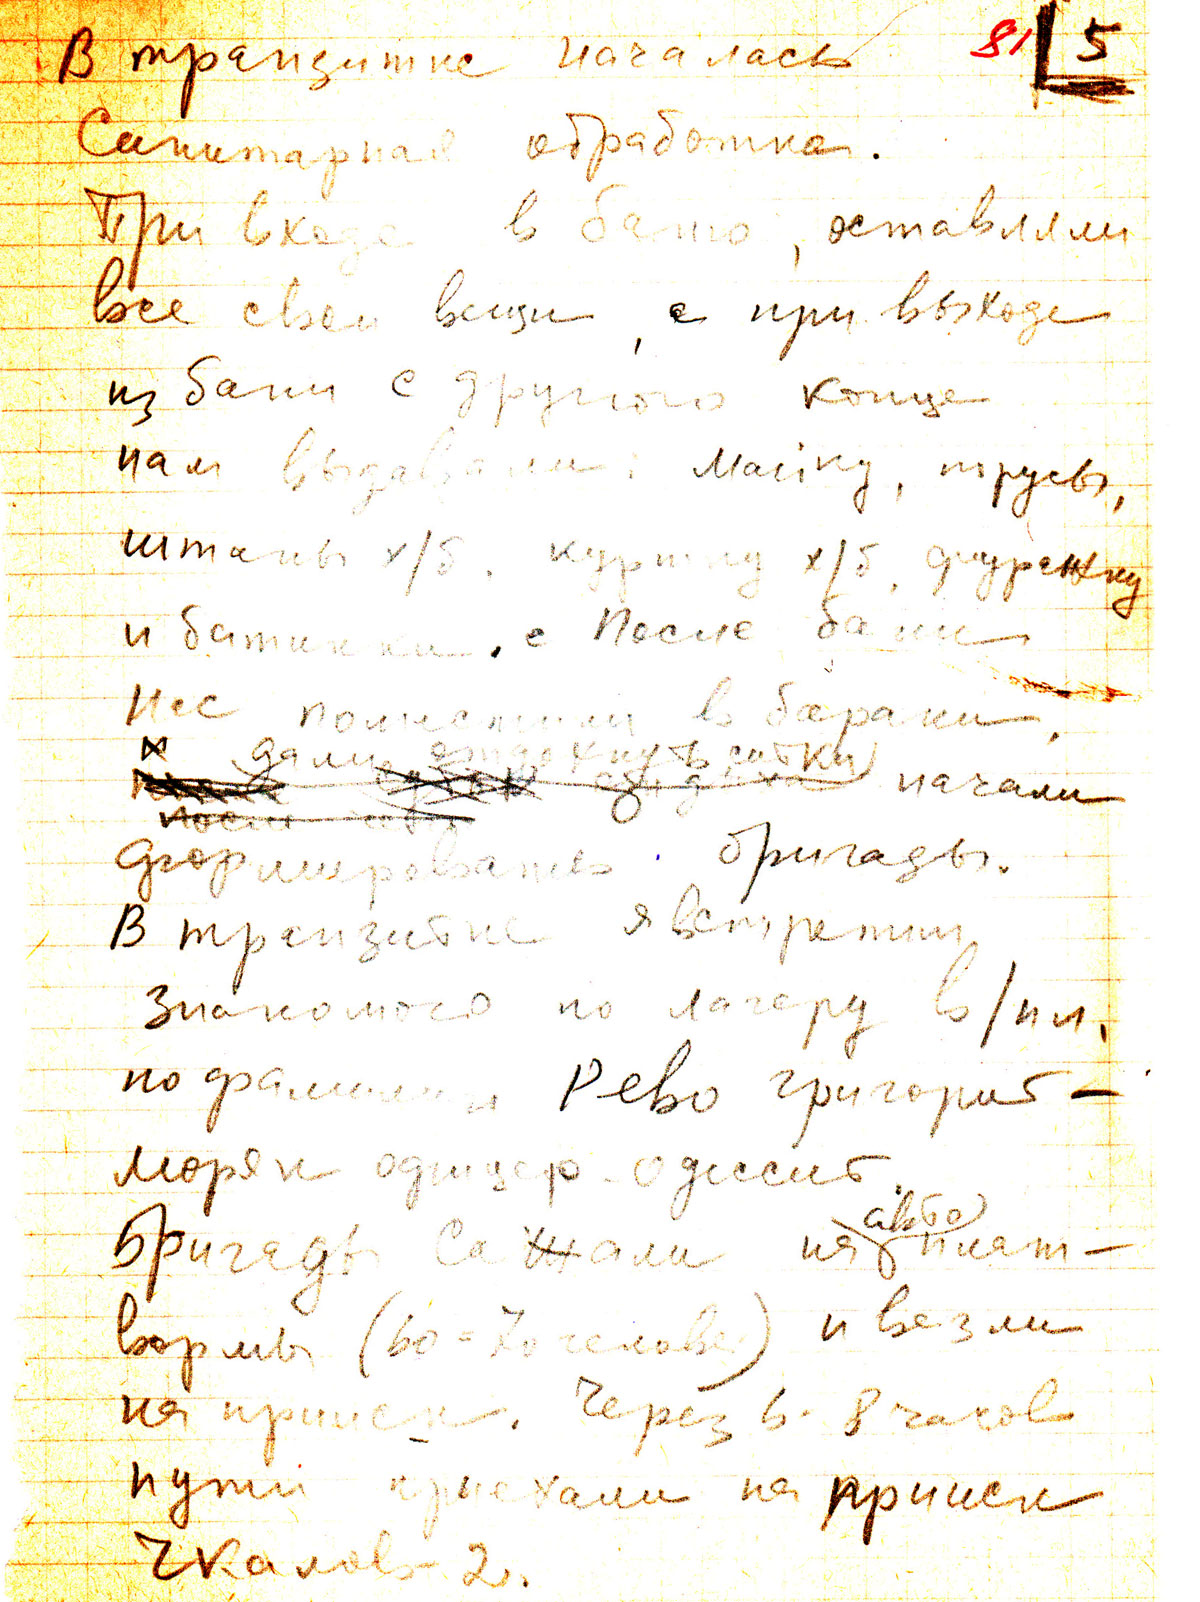 81 5
В транзитке началась
Санитарная обработка.
При входе в баню, оставляли
все свои вещи, а при выходе
из бани с другого конца
нам выдавали: майку, трусы,
штаны х/б. куртку х/б, фуражку
и ботинки. с После бани
Нас поместили в бараки,
и дали отдохнуть сутки
начали
после
формировать бригады.
В транзитке я встретил
знакомого по лагеру в/пл.
по фамилии Рево Григорий —
моряк офицер. одессит.
авто
Бригады Сажали на плат-
вормы (60-70 человек) и везли
на прииск. Через 6-8 часов
пути приехали на прииск
Чкалов-2.